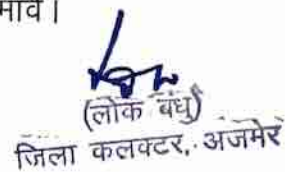 मावे।
(लोक बंधु)
जिला कलक्टर, अजमेर